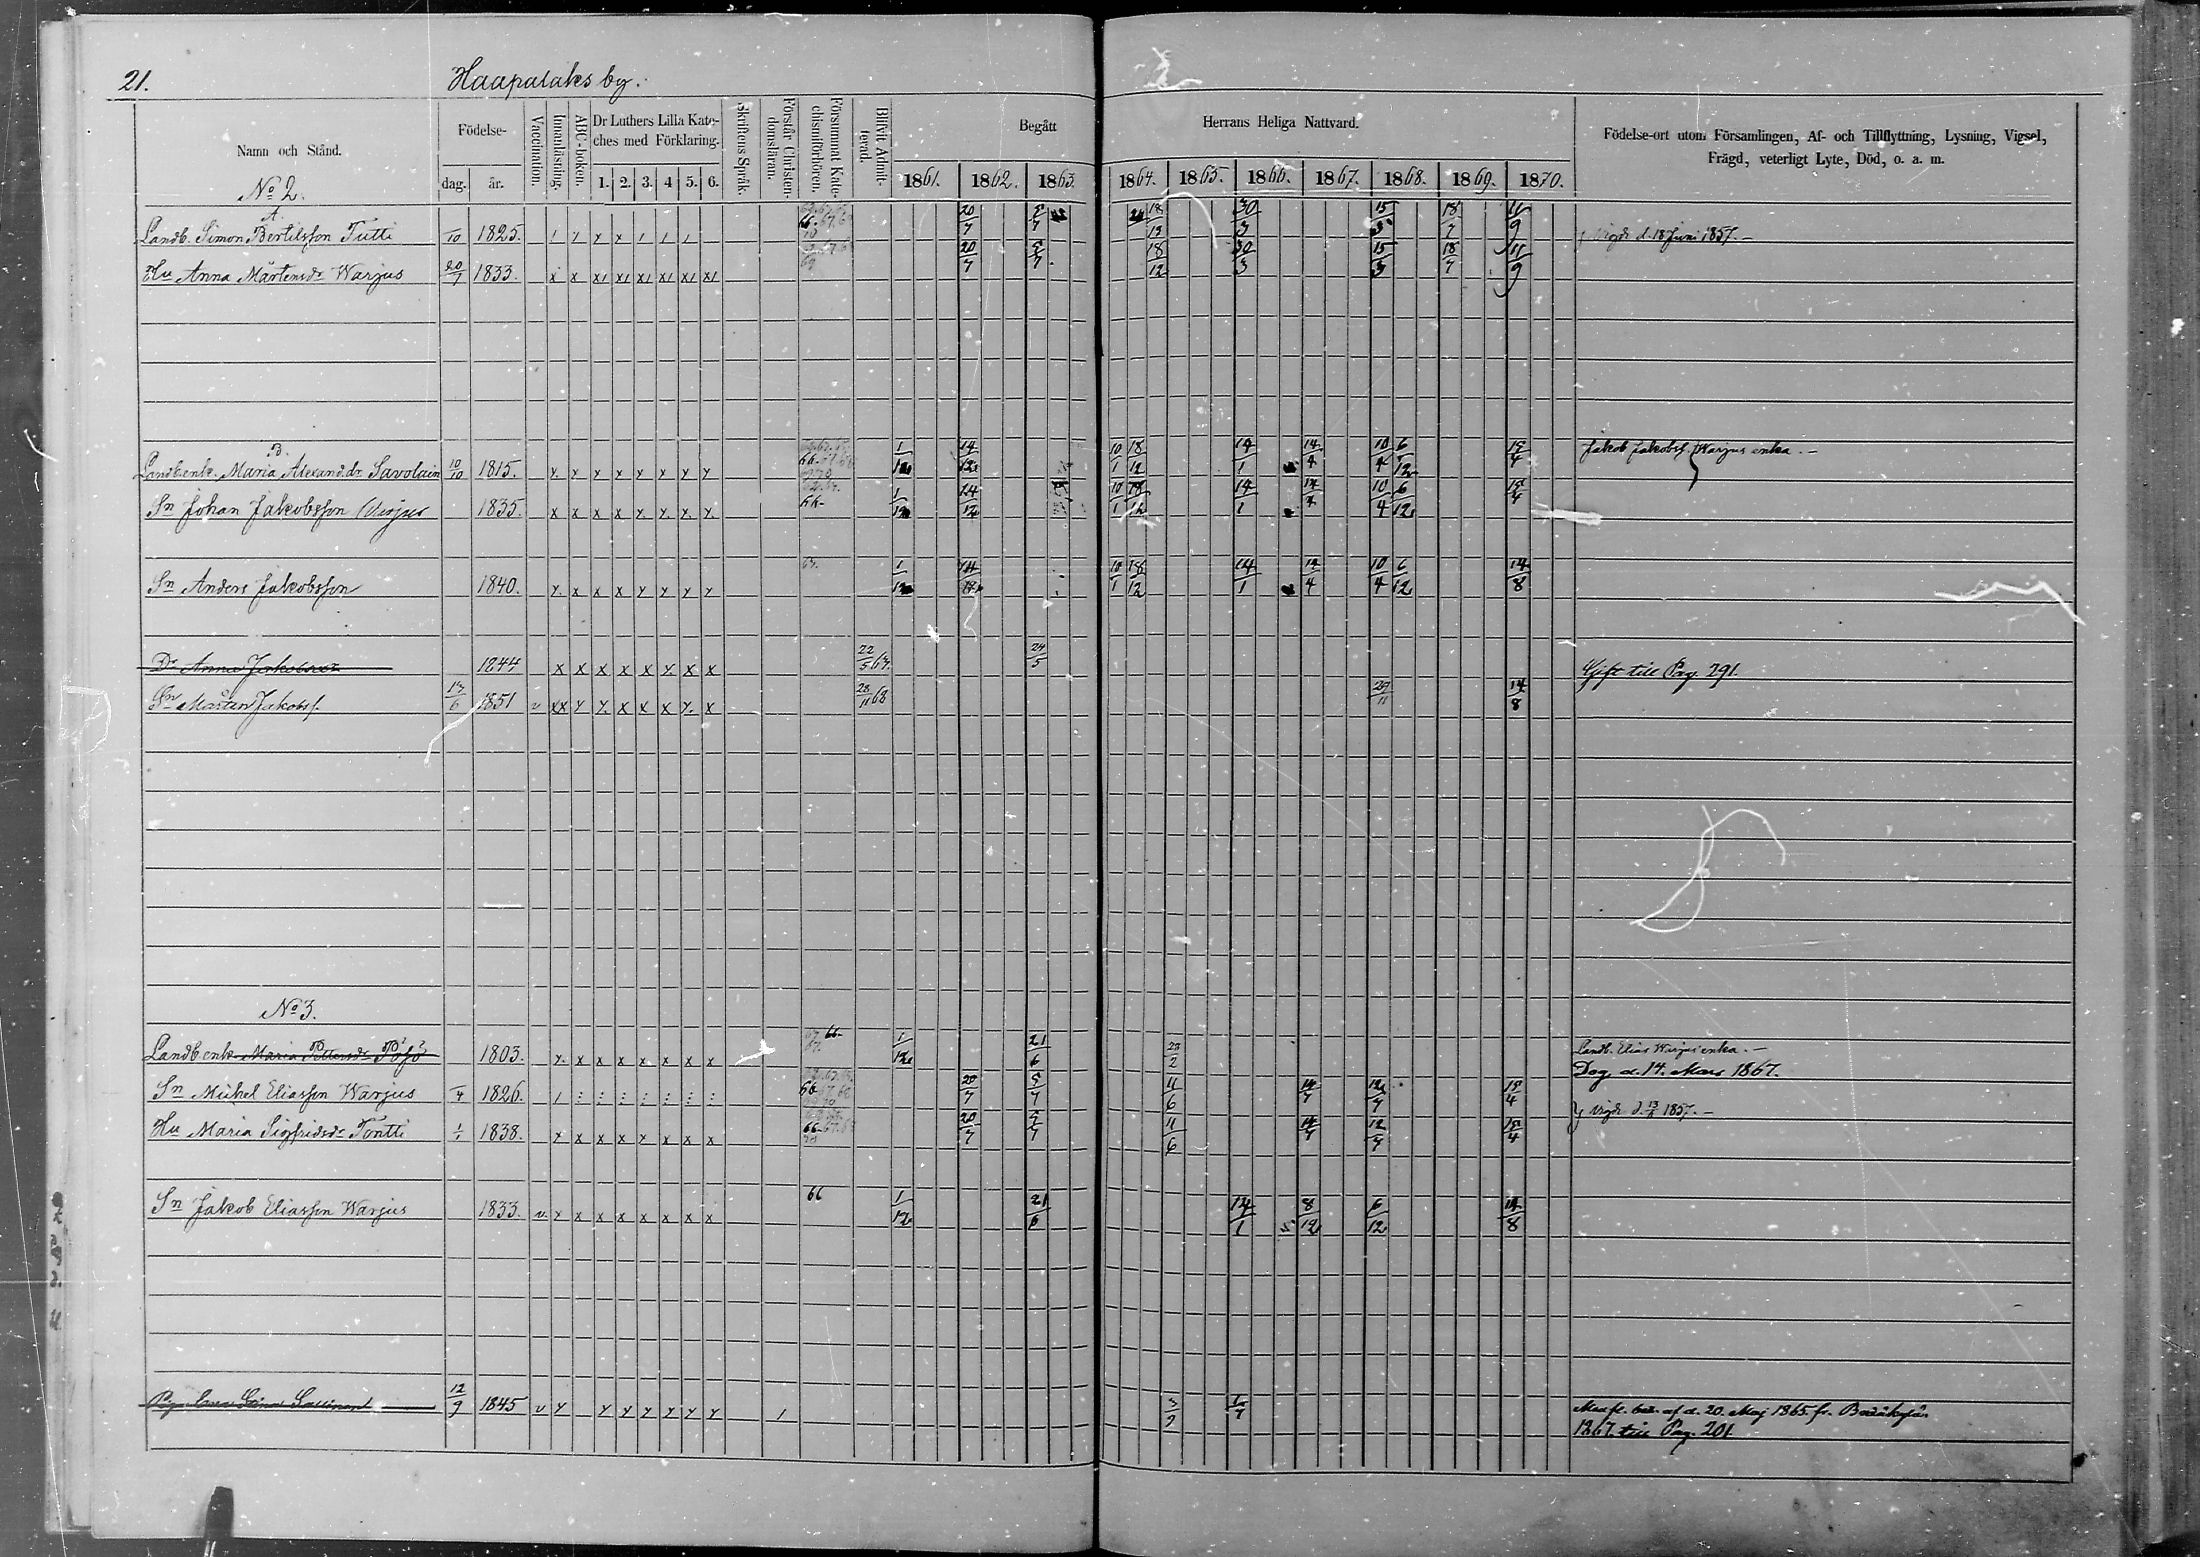 21. Haapalaks by.
Namn och Stånd.
Födelse-
dag. år.
Vaccination.
Innanläsning.
ABC-boken.
Dr Luthers Lilla Kate-
ches med Förklaring.
1. 2. 3. 4 5. 6.
Skriftens Språk.
Förstår Christen-
domsläran.
Försummat Kate-
chismiförhören.
Blifvit Admit-
terad.
Begått Herrans Heliga Nattvard.
1861. 1862. 1863. 1864. 1865. 1866. 1867. 1868. 1869. 1870.
Födelse-ort utom Församlingen, Af- och Tillflyttning, Lysning, Vigsel,
Frägd, veterligt Lyte, Död, o. a. m.
No 2.
A.
Landb. Simon Bertilsson Tutti /10 1825. 20/7 5/7 18/12 30/3 15/3 18/7 11/9 Vigde d. 18 Juni 1857. —
Hu Anna Mårtensdr Warjus 20/7 1833. 20/7 5/7 18/12 30/3 15/3 18/7 11/9
B.
Landb.enk. Maria Alexand.dr Savolain 10/10 1815. 1/12 14/12 10/1 18/12 14/1 14/4 10/4 6/12 15/4 Jakob Jakobss. Warjus enka. —
Sn Johan Jakobsson Warjus 1835. 66. 1/12 14/12 10/1 18/12 14/1 14/4 10/4 6/12 15/4
Sn Anders Jakobsson 1840. 1/12 14/12 10/1 18/12 14/1 14/4 10/4 6/12 14/8
Dr Anna Jakobsdr 1844 22/5 63. 24/5 Gift till Pag. 291.
Sn Mårten Jakobss. 13/6 1851 v 28/11 68 29/11 14/8
No 3.
Landb enk Maria Pettersdr Pöyö 1803. 66. 1/12 21/6 23/2 Landb. Elias Warjus enka. —
Dog d. 14. Mars 1867.
Sn Mickel Eliasson Warjus /4 1826. 66 20/7 5/7 11/6 14/7 12/7 15/4
Hu Maria Sigfridsdr Tontti 1/1 1838. 66 20/7 5/7 11/6 14/7 12/7 15/4 Vigde d. 13/6 1857. —
Sn Jakob Eliasson Warjus 1833. v. 66 1/12 21/6 14/1 8/12 6/12 14/8
12/9 1845 v 3/2 af d. 20. Maj 1865. fr.
1867. till Pag. 201